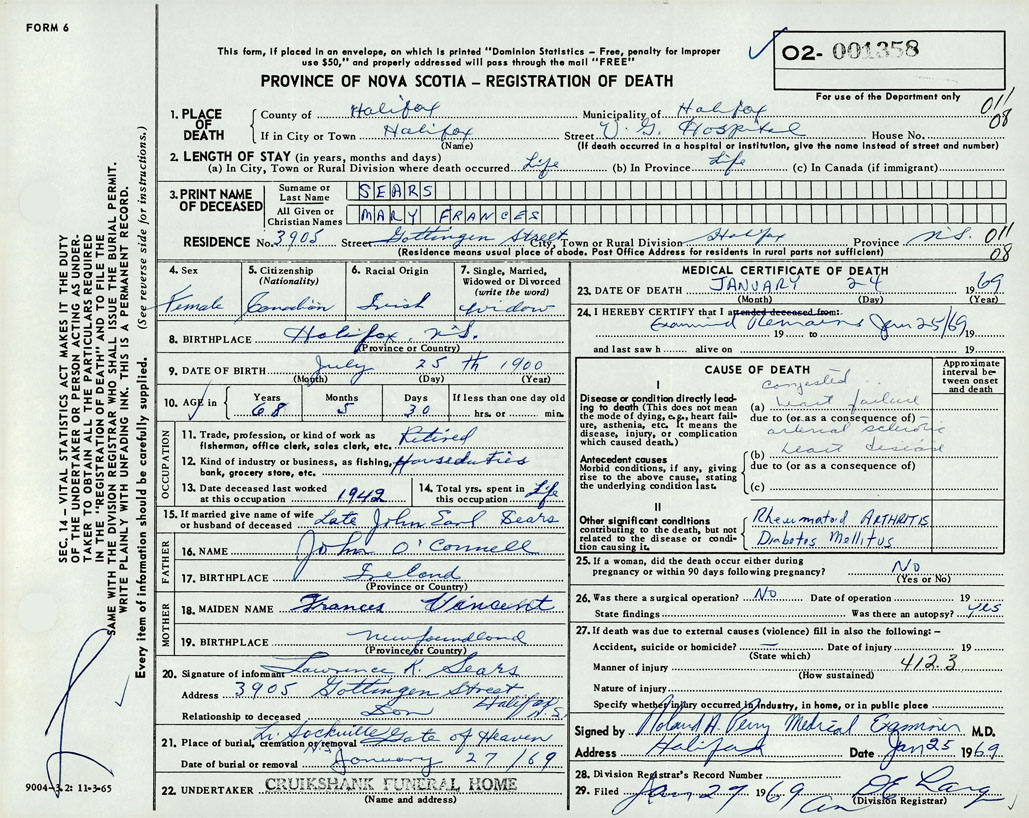 FORM 6
This form, if placed in an envelope, on which is printed "Dominion Statistics – Free, penalty for improper
use $50," and properly addressed will pass through the mail "FREE"
PROVINCE OF NOVA SCOTIA – REGISTRATION OF DEATH
02- 001358
For use of the Department only
011
08
1. PLACE OF DEATH
County of Halifax Municipality of Halifax
If in City or Town Halifax Street V. G. Hospital House No.
(Name) (If death occurred in a hospital or institution, give the name instead of street and number)
2. LENGTH OF STAY (in years, months and days)
(a) In City, Town or Rural Division where death occurred Life (b) In Province Life (c) In Canada (if immigrant)
3. PRINT NAME OF DECEASED
Surname or Last Name SEARS
All Given or Christian Names MARY FRANCES
RESIDENCE No. 3905 Street Gottingen Street City, Town or Rural Division Halifax Province N.S. 011
08
(Residence means usual place of abode. Post Office Address for residents in rural parts not sufficient)
4. Sex Female
5. Citizenship (Nationality) Canadian
6. Racial Origin Irish
7. Single, Married, Widowed or Divorced (write the word) Widow
8. BIRTHPLACE Halifax, N.S.
(Province or Country)
9. DATE OF BIRTH July 25 th 1900
(Month) (Day) (Year)
10. AGE in Years 68 Months 5 Days 30 If less than one day old hrs. or min.
OCCUPATION
11. Trade, profession, or kind of work as fisherman, office clerk, sales clerk, etc. Retired
12. Kind of industry or business, as fishing, bank, grocery store, etc. Houseduties
13. Date deceased last worked at this occupation 1942
14. Total yrs. spent in this occupation Life
15. If married give name of wife or husband of deceased Late John Earl Sears
FATHER
16. NAME John O'Connell
17. BIRTHPLACE Ireland
(Province or Country)
MOTHER
18. MAIDEN NAME Frances Vincent
19. BIRTHPLACE Newfoundland
(Province or Country)
20. Signature of informant Lawrence K. Sears
Address 3905 Gottingen Street
Halifax N.S.
Relationship to deceased Son
21. Place of burial, cremation or removal Lr. Sackville N.S. Gate of Heaven
Date of burial or removal January 27/69
22. UNDERTAKER CRUIKSHANK FUNERAL HOME
(Name and address)
MEDICAL CERTIFICATE OF DEATH
23. DATE OF DEATH JANUARY 24 1969
(Month) (Day) (Year)
24. I HEREBY CERTIFY that I attended deceased from:
Examined Remains Jan 25/69
19 to 19
and last saw h alive on 19
CAUSE OF DEATH
Approximate interval between onset and death
I
Disease or condition directly leading to death (This does not mean the mode of dying, e.g., heart failure, asthenia, etc. It means the disease, injury, or complication which caused death.)
(a) congested heart failure
due to (or as a consequence of) –
Antecedent causes
Morbid conditions, if any, giving rise to the above cause, stating the underlying condition last.
(b) arterial sclerotic heart disease
due to (or as a consequence of)
(c)
II
Other significant conditions contributing to the death, but not related to the disease or condition causing it.
Rheumatoid ARTHRITIS
Diabetes Mellitus
25. If a woman, did the death occur either during pregnancy or within 90 days following pregnancy? No
(Yes or No)
26. Was there a surgical operation? No Date of operation 19
State findings Was there an autopsy? yes
27. If death was due to external causes (violence) fill in also the following: –
Accident, suicide or homicide? Date of injury 19
(State which)
Manner of injury 412.3
(How sustained)
Nature of injury
Specify whether injury occurred in industry, in home, or in public place
Signed by Roland A. Perry Medical Examiner M.D.
Address Halifax Date Jan 25 1969
28. Division Registrar's Record Number
29. Filed Jan 27 1969
(Division Registrar)
SEC. 14 – VITAL STATISTICS ACT MAKES IT THE DUTY
OF THE UNDERTAKER OR PERSON ACTING AS UNDER-
TAKER TO OBTAIN ALL THE PARTICULARS REQUIRED
IN THE "REGISTRATION OF DEATH" AND TO FILE THE
SAME WITH THE DIVISION REGISTRAR WHO SHALL ISSUE THE BURIAL PERMIT.
WRITE PLAINLY WITH UNFADING INK. THIS IS A PERMANENT RECORD.
Every item of information should be carefully supplied. (See reverse side for instructions.)
9004-3.2: 11-3-65